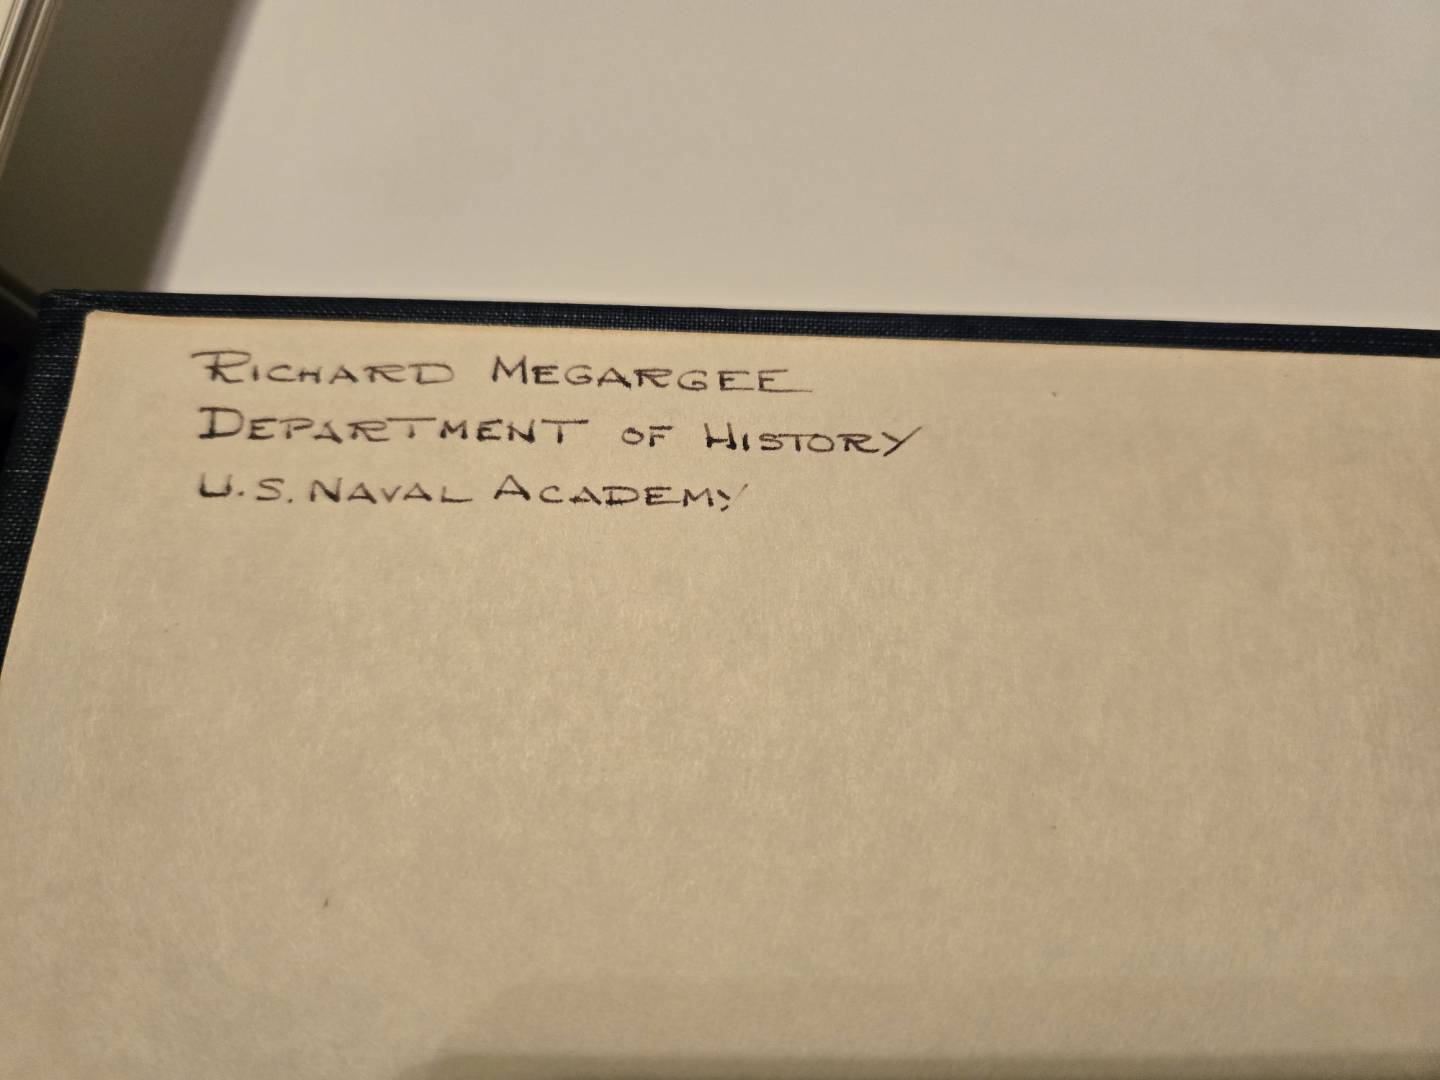 RICHARD MEGARGEE
DEPARTMENT OF HISTORY
U.S. NAVAL ACADEMY